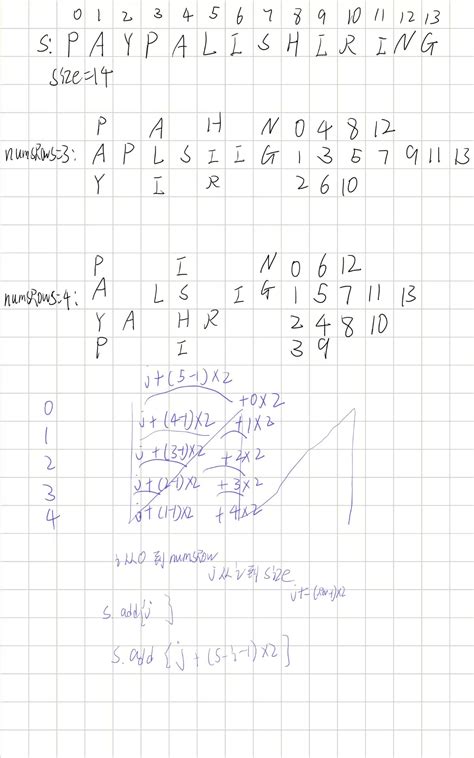 0 1 2 3 4 5 6 7 8 9 10 11 12 13
S: P A Y P A L I S H I R I N G
size=14
P A H N 0 4 8 12
numsRows=3: A P L S I I G 1 3 5 7 9 11 13
Y I R 2 6 10
P I N 0 6 12
numsRows=4: A L S I G 1 5 7 11 13
Y A H R 2 4 8 10
P I 3 9
j+(5-1)×2
0 +0×2
1 j+(4-1)×2 +1×2
2 j+(3-1)×2 +2×2
3 j+(2-1)×2 +3×2
4 j+(1-1)×2 +4×2
i从0到numsRow
j从i到size
j+=(row-1)×2
s.add{j}
s.add{j+(5-i-1)×2}